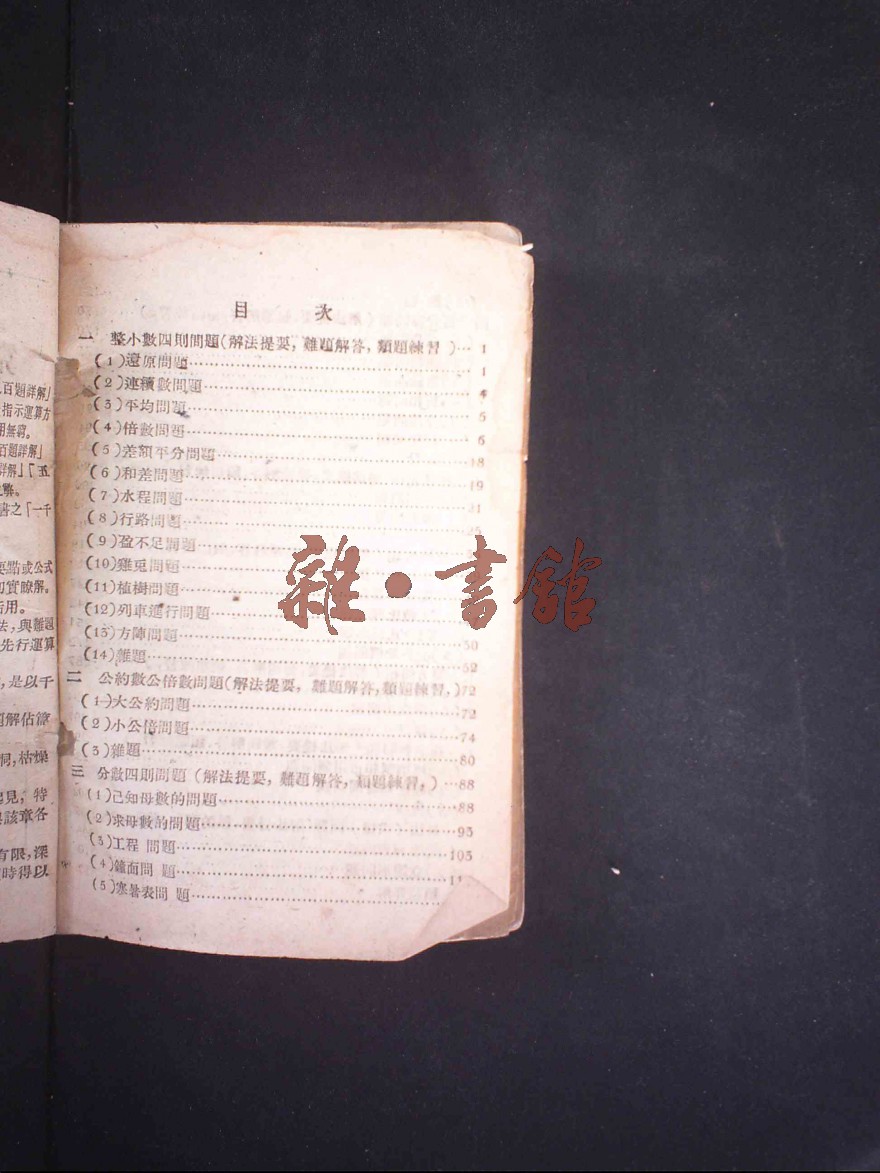 目 次
一 整小數四則問題(解法提要,難題解答,類題練習)… 1
(1)還原問題 1
(2)連續數問題 4
(3)平均問題 5
(4)倍數問題 6
(5)差額平分問題 18
(6)和差問題 19
(7)水程問題 21
(8)行路問題 25
(9)盈不足問題
(10)雞兎問題
(11)植樹問題
(12)列車進行問題
(13)方陣問題 50
(14)雜題 52
二 公約數公倍數問題(解法提要,難題解答,類題練習,)72
(1)大公約問題 72
(2)小公倍問題 74
(3)雜題 80
三 分數四則問題(解法提要,難題解答,類題練習,)…88
(1)已知母數的問題 88
(2)求母數的問題 95
(3)工程 問題 105
(4)鐘面問 題 11
(5)寒暑表問 題
百題詳解」
指示運算方
用無窮。
百題詳解」
詳解」「五
書之「一千
要點或公式
切實瞭解。
活用。
法,與難題
先行運算
,是以千
題解估篇
洞,枯燥
起見,特
與該章各
有限,深
時得以
雜·書館